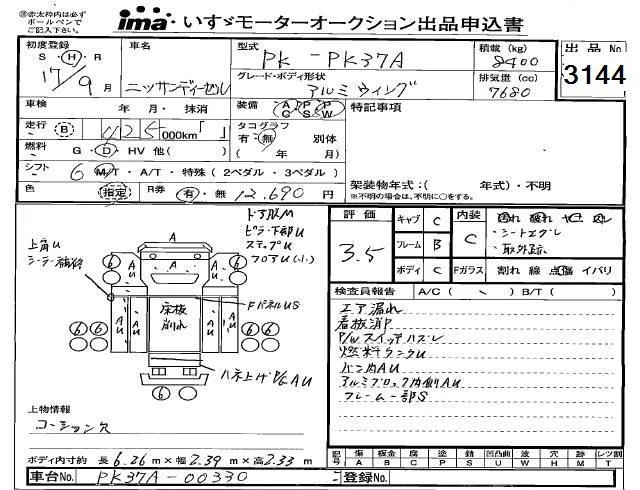 ※赤太枠内は必ず
ボールペンで
ご記入下さい。
ima・いすゞモーターオークション出品申込書
初度登録
S・H・R
17/9月
車名
ニッサンディーゼル
型式
PK-PK37A
積載(kg)
8400
出品No
3144
グレード・ボディ形状
アルミウィング
排気量(cc)
7680
車検 年 月・抹消
装備 AC PS PW
特記事項
走行 B 425000km「 」
タコグラフ
有・無 別体
( 年 月)
燃料 G・D・HV 他( )
シフト 6 M/T・A/T・特殊(2ペダル・3ペダル)
架装物年式:( 年式)・不明
※不明の場合は、不明に○をする。
色 指定 R券 有・無 12.690円
評価
3.5
キャブ C
フレーム B
ボディ C
内装
C
・シートスグレ
・取外跡
Fガラス 割れ 線 点傷 イバリ
ドア股M
ピラー下部U
ステップU
フロアU(小)
上角U
シーラー補修
A
6 6
A
U
A
U
床板
削れ
A
U
A
U
FパネルUS
6 6 6 6
ハネ上げP/G AU
検査員報告 A/C( 、 ) B/T( )
エア漏れ
看板消印
P/Wスイッチハズレ
燃料タンクU
バン内AU
アルミブロック内側AU
フレーム一部S
上物情報
コーション欠
ボディ内寸約 長6.26m×幅2.39m×高2.33m
記号 傷 板金 腐 塗 錆 凹凸曲 波 穴 跡 レツ割
A B C P S U W H M T
車台No. PK37A-00330
登録No.